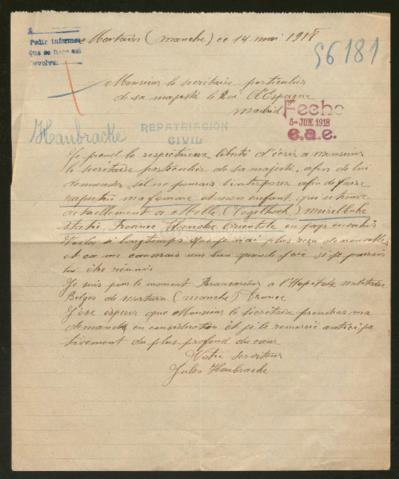 A
Pedir informes
que se hara asi
devolver
Mortain (manche) ce 14 mai 1918
56181
Monsieur le secrétaire particulier
de sa majesté le Roi d'Espagne
Madrid
Fecho
5-JUN.1918
e.a.e.
Haubracke
REPATRIACION
CIVIL
Je prend la respectueuse liberté d'écrire a monsieur
le secrétaire particulier de sa majesté, afin de lui
demander sil ne pourais l'interposer afin de faire
rapatrier ma femme et mon enfant qui se trouve
actuellement a Melle (Vogelhoek) Meirelbeke
Station, Province, Flandre Orientale en pays envahis
Voila si longtemps que je n'ai plus reçu de nouvelles
et ca me causerais une bien grande joie si je pourrais
les être réunis
Je suis pour le moment Brancardier a l'Hopital militaire
Belges de mortain (manche) France
J'ose esperer que Monsieur le Secrétaire prendras ma
demande en considération et je le remercie anticipa
tivement du plus profond du cœur
Votre serviteur
Jules Haubracke